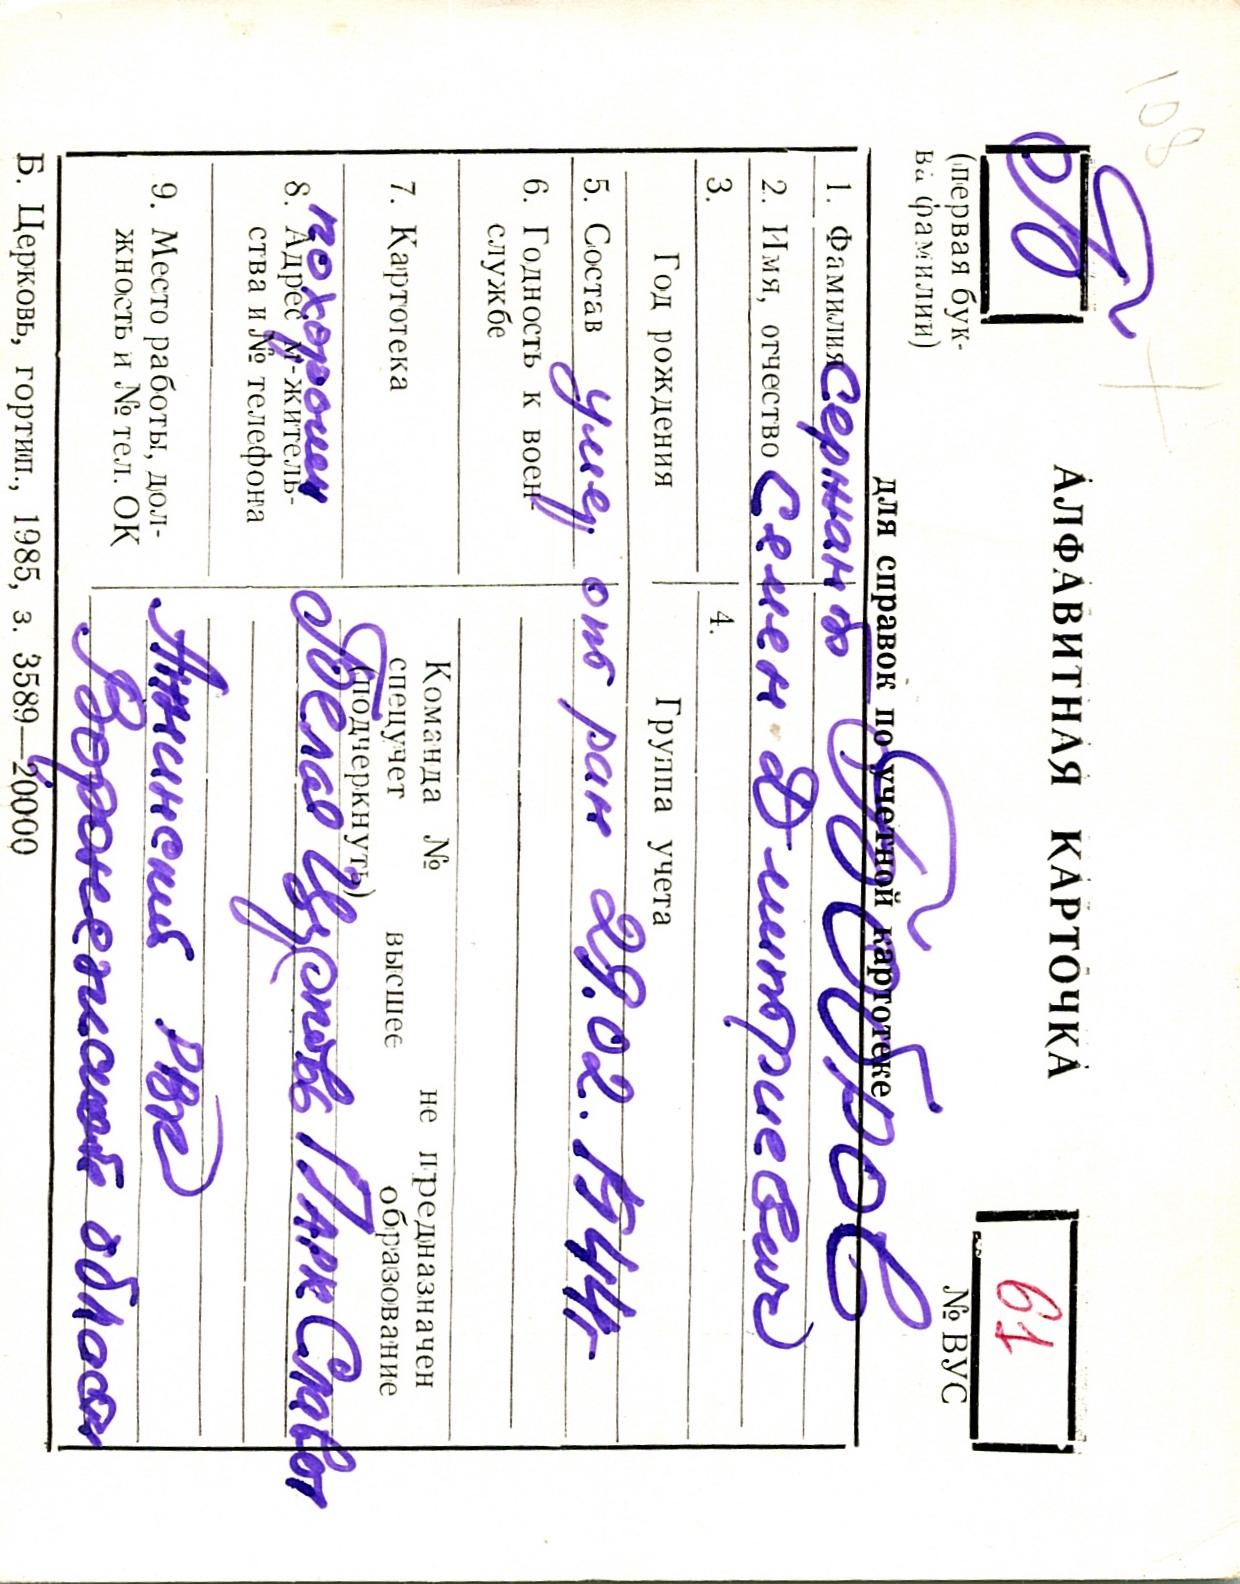 108
Б
(первая бук-
ва фамилии)
АЛФАВИТНАЯ КАРТОЧКА
для справок по учетной картотеке
61
№ ВУС
1. Фамилия Сержант Бобров
2. Имя, отчество Семен Дмитриевич
3.
4.
Год рождения
Группа учета
5. Состав умер от ран 29.02.1944г.
6. Годность к воен-
службе
7. Картотека
Команда № не предназначен
спецучет высшее образование
(подчеркнуть)
похоронен
8. Адрес м-житель-
ства и № телефона
Белая Церковь Парк Славы
9. Место работы, дол-
жность и № тел. ОК
Аннинский РВК
Воронежской области
Б. Церковь, гортип., 1985, з. 3589—20000